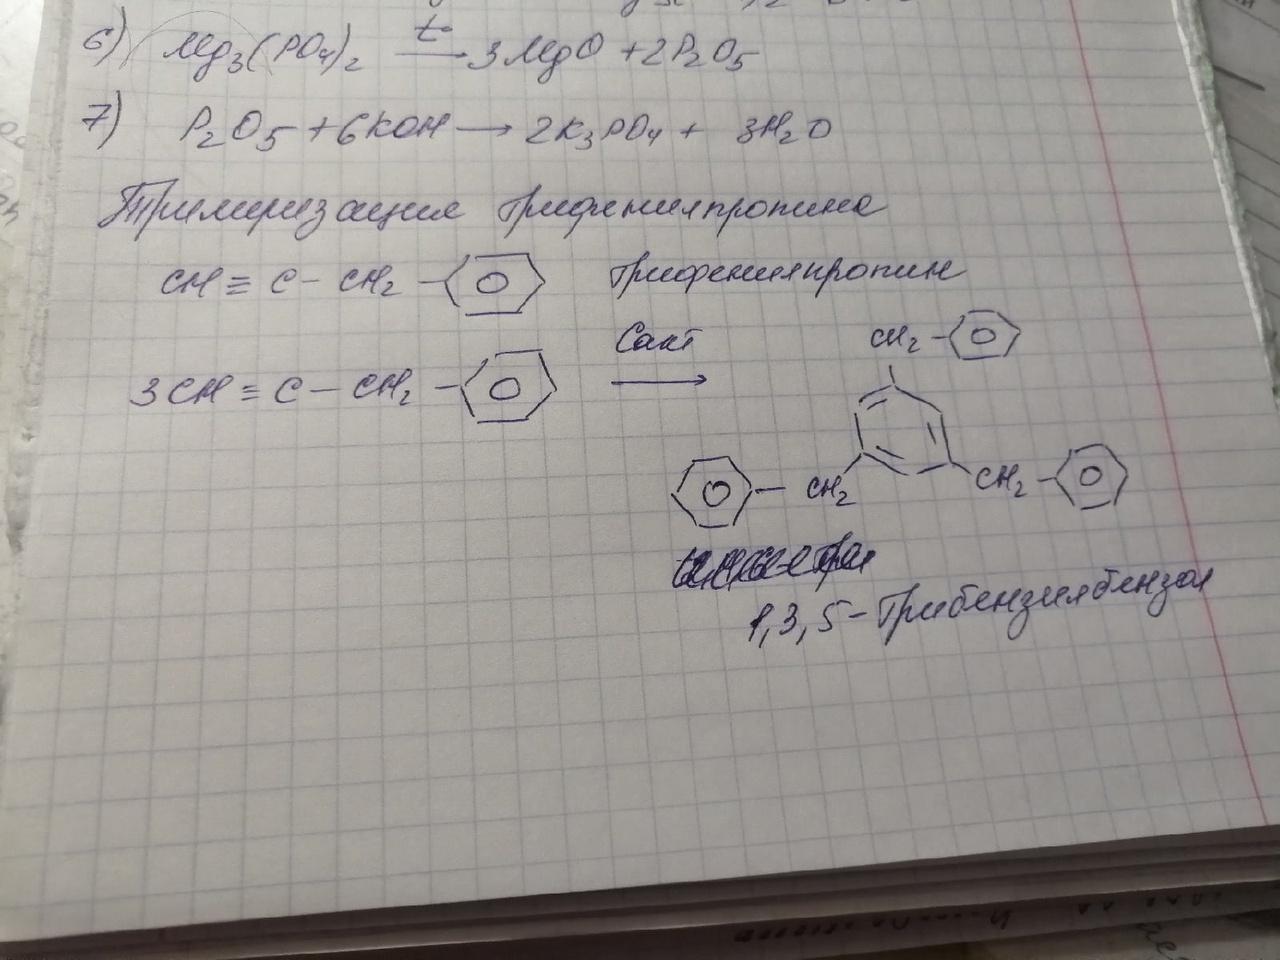 6) Mg₃(PO₄)₂ —t°→ 3MgO + 2P₂O₅
7) P₂O₅ + 6KOH → 2K₃PO₄ + 3H₂O
Тримеризация трифенилпропина
CH ≡ C – CH₂ – трифенилпропин
3CH ≡ C – CH₂ – Cакт →
CH₂ –
– CH₂ CH₂ –
1,3,5-трибензилбензол